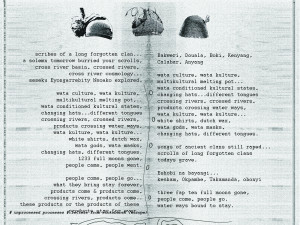 scribes of a long forgotten clan...
a solemn tomorrow buried your scrolls,
cross river basin, crossed rivers,
cross river cosmology...
wata culture, wata kulture,
multikultural melting pot,
wata conditioned kultural states,
changing hats...different tongues
crossing rivers, crossed rivers,
products crossing water ways,
wata culture, wata kulture...
white shirts, dutch wax,
wata gods, wata masks,
changing hats...different tongues,
1233 full moons gone,
people come, people went.
people come, people go...
what they bring stay forever,
products come & products come,
crossing rivers, products come
these products or the products of these
Bakweri, Douala, Boki, Kenyang,
Calabar, Anyang
wata culture, wata kulture,
multikultural melting pot...
wata conditioned kultural states,
changing hats...different tongues
crossing rivers, crossed rivers,
products crossing water ways,
wata culture, wata kulture...
white shirts, dutch wax,
wata gods, wata masks,
changing hats...different tongues.
songs of ancient clans still roped...
scrolls of long forgotten clans
todays grave.
people come, people go.
water ways bound to stay.